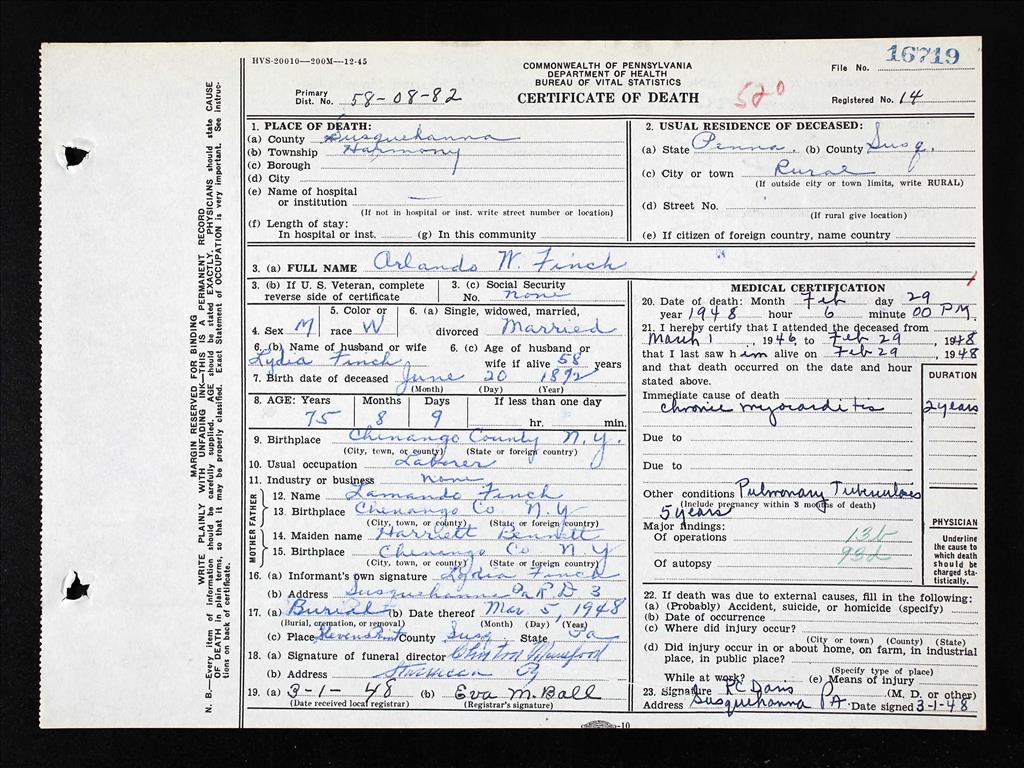 16719
HVS-20010—200M—12-45
COMMONWEALTH OF PENNSYLVANIA
DEPARTMENT OF HEALTH
BUREAU OF VITAL STATISTICS
CERTIFICATE OF DEATH
File No.
Primary Dist. No. 58-08-82
520
Registered No. 14
MARGIN RESERVED FOR BINDING
WRITE PLAINLY WITH UNFADING INK—THIS IS A PERMANENT RECORD
N. B.—Every item of information should be carefully supplied. AGE should be stated EXACTLY. PHYSICIANS should state CAUSE
OF DEATH in plain terms, so that it may be properly classified. Exact Statement of OCCUPATION is very important. See instruc-
tions on back of certificate.
1. PLACE OF DEATH:
(a) County Susquehanna
(b) Township Harmony
(c) Borough
(d) City
(e) Name of hospital
or institution —
(If not in hospital or inst. write street number or location)
(f) Length of stay:
In hospital or inst. (g) In this community
2. USUAL RESIDENCE OF DECEASED:
(a) State Penna. (b) County Susq.
(c) City or town Rural
(If outside city or town limits, write RURAL)
(d) Street No.
(If rural give location)
(e) If citizen of foreign country, name country
3. (a) FULL NAME Orlando W. Finch
3. (b) If U. S. Veteran, complete
reverse side of certificate
3. (c) Social Security
No. none
4. Sex M
5. Color or
race W
6. (a) Single, widowed, married,
divorced Married
6. (b) Name of husband or wife
Lydia Finch
6. (c) Age of husband or
wife if alive 58 years
7. Birth date of deceased June 20 1872
(Month) (Day) (Year)
8. AGE: Years Months Days If less than one day
75 8 9 hr. min.
9. Birthplace Chenango County N.Y.
(City, town, or county) (State or foreign country)
10. Usual occupation Laborer
11. Industry or business none
FATHER
12. Name Lamando Finch
13. Birthplace Chenango Co N.Y
(City, town, or county) (State or foreign country)
MOTHER
14. Maiden name Harriett Bennett
15. Birthplace Chenango Co N.Y
(City, town, or county) (State or foreign country)
16. (a) Informant's own signature Lydia Finch
(b) Address Susquehanna Pa R D 3
17. (a) Burial (b) Date thereof Mar. 5, 1948
(Burial, cremation, or removal) (Month) (Day) (Year)
(c) Place Stevens Point County Susq. State Pa
18. (a) Signature of funeral director Clinton
(b) Address
19. (a) 3-1-48 (b) Eva M. Ball
(Date received local registrar) (Registrar's signature)
MEDICAL CERTIFICATION
20. Date of death: Month Feb day 29
year 1948 hour 6 minute 00 PM.
21. I hereby certify that I attended the deceased from
March 1, 1946, to Feb 29, 1948
that I last saw him alive on Feb 29, 1948
and that death occurred on the date and hour
stated above.
DURATION
Immediate cause of death
chronic myocarditis 2 years
Due to
Due to
Other conditions Pulmonary Tuberculosis
(Include pregnancy within 3 months of death)
5 years
Major findings:
Of operations 13b
93d
Of autopsy
PHYSICIAN
Underline
the cause to
which death
should be
charged sta-
tistically.
22. If death was due to external causes, fill in the following:
(a) (Probably) Accident, suicide, or homicide (specify)
(b) Date of occurrence
(c) Where did injury occur?
(City or town) (County) (State)
(d) Did injury occur in or about home, on farm, in industrial
place, in public place?
(Specify type of place)
While at work? (e) Means of injury
23. Signature R C Davis (M. D. or other)
Address Susquehanna PA. Date signed 3-1-48
10